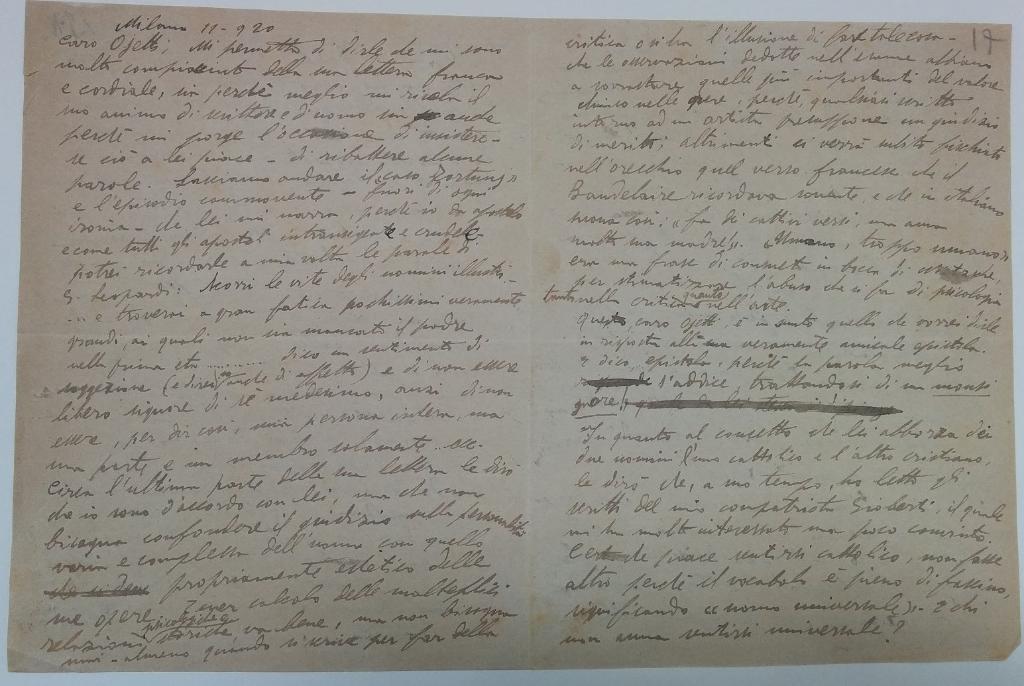 Milano 11-920
Caro Ojetti, Mi permetta di dirle che mi sono
molto compiaciuto della sua lettera franca
e cordiale, sia perchè meglio mi rivela il
suo animo di scrittore e di uomo sia anche
perchè mi porge l'occasione di insistere-
se ciò a lei piace - di ribattere alcune
parole. Lasciamo andare il caso Fortuny
e l'episodio commovente - fuori d'ogni
ironia - che lei mi narra, perchè io da apostolo
e come tutti gli apostoli intransigente e crudele
potrei ricordarle a mia volta le parole di
G. Leopardi: Scorri le vite degli uomini illustri..
... e troverai a gran fatica pochissimi veramente
grandi, ai quali non sia mancato il padre
nella prima età ........ dico un sentimento di
soggezione (e direi anche di affetto) e di non essere
libero signore di se medesimo, anzi di non
essere, per dir così, una persona intera, ma
una parte e un membro solamente.. ecc.
Circa l'ultima parte della sua lettera le dirò
che io sono d'accordo con lei, ma che non
bisogna confondere il giudizio sulla personalità
varia e complessa dell'uomo con quello
propriamente estetico delle
sue opere. Far calcolo delle molteplici
relazioni psicologiche storiche va bene, ma non bisogna
mai - almeno quando si scrive per far della
17
critica o si ha l'illusione di far tale cosa -
che le osservazioni dedotte nell'esame abbiano
a sormontare quelle più importanti del valore
chiuso nelle opere, perchè, qualsiasi scritto
intorno ad un artista presuppone un giudizio
di meriti; altrimenti ci verrà subito fischiato
nell'orecchio quel verso francese che il
Baudelaire ricordava sovente, e che in italiano
suona così: "fa dei cattivi versi, ma ama
molto sua madre". "Umano, troppo umano"
era una frase di
per stimatizzare l'abuso che si fa di psicologia
tanto nella critica quanto nell'arte.
Questo, caro Ojetti, è in sunto quello che vorrei dirle
in risposta alla sua veramente amicale epistola.
E dico, epistola, perchè la parola meglio
s'addice, trattandosi di un monsi
gnore
In quanto al concetto che lei abbozza dei
due uomini l'uno cattolico e l'altro cristiano,
le dirò che, a suo tempo, ho letto gli
scritti del mio compatriota Gioberti, il quale
mi ha molto interessato ma poco convinto.
Certo che piace sentirsi cattolico, non fosse
altro perchè il vocabolo è pieno di fascino,
significando "uomo universale". E chi
non ama sentirsi universale?